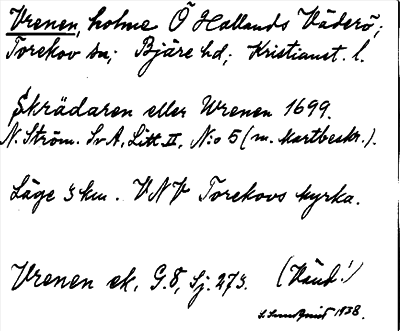 Vrenen, holme Ö Hallands Väderö;
Torekov sn; Bjäre hd; Kristianst. l.
Skrädaren eller Wrenen 1699.
N. Ström. SvA, Litt II, N:o 5 (m. Kartbeskr.).
Läge 3 km. VNV Torekovs kyrka.
Vrenen ek, G.8, Sj. 273. (Vänd!)
1938.